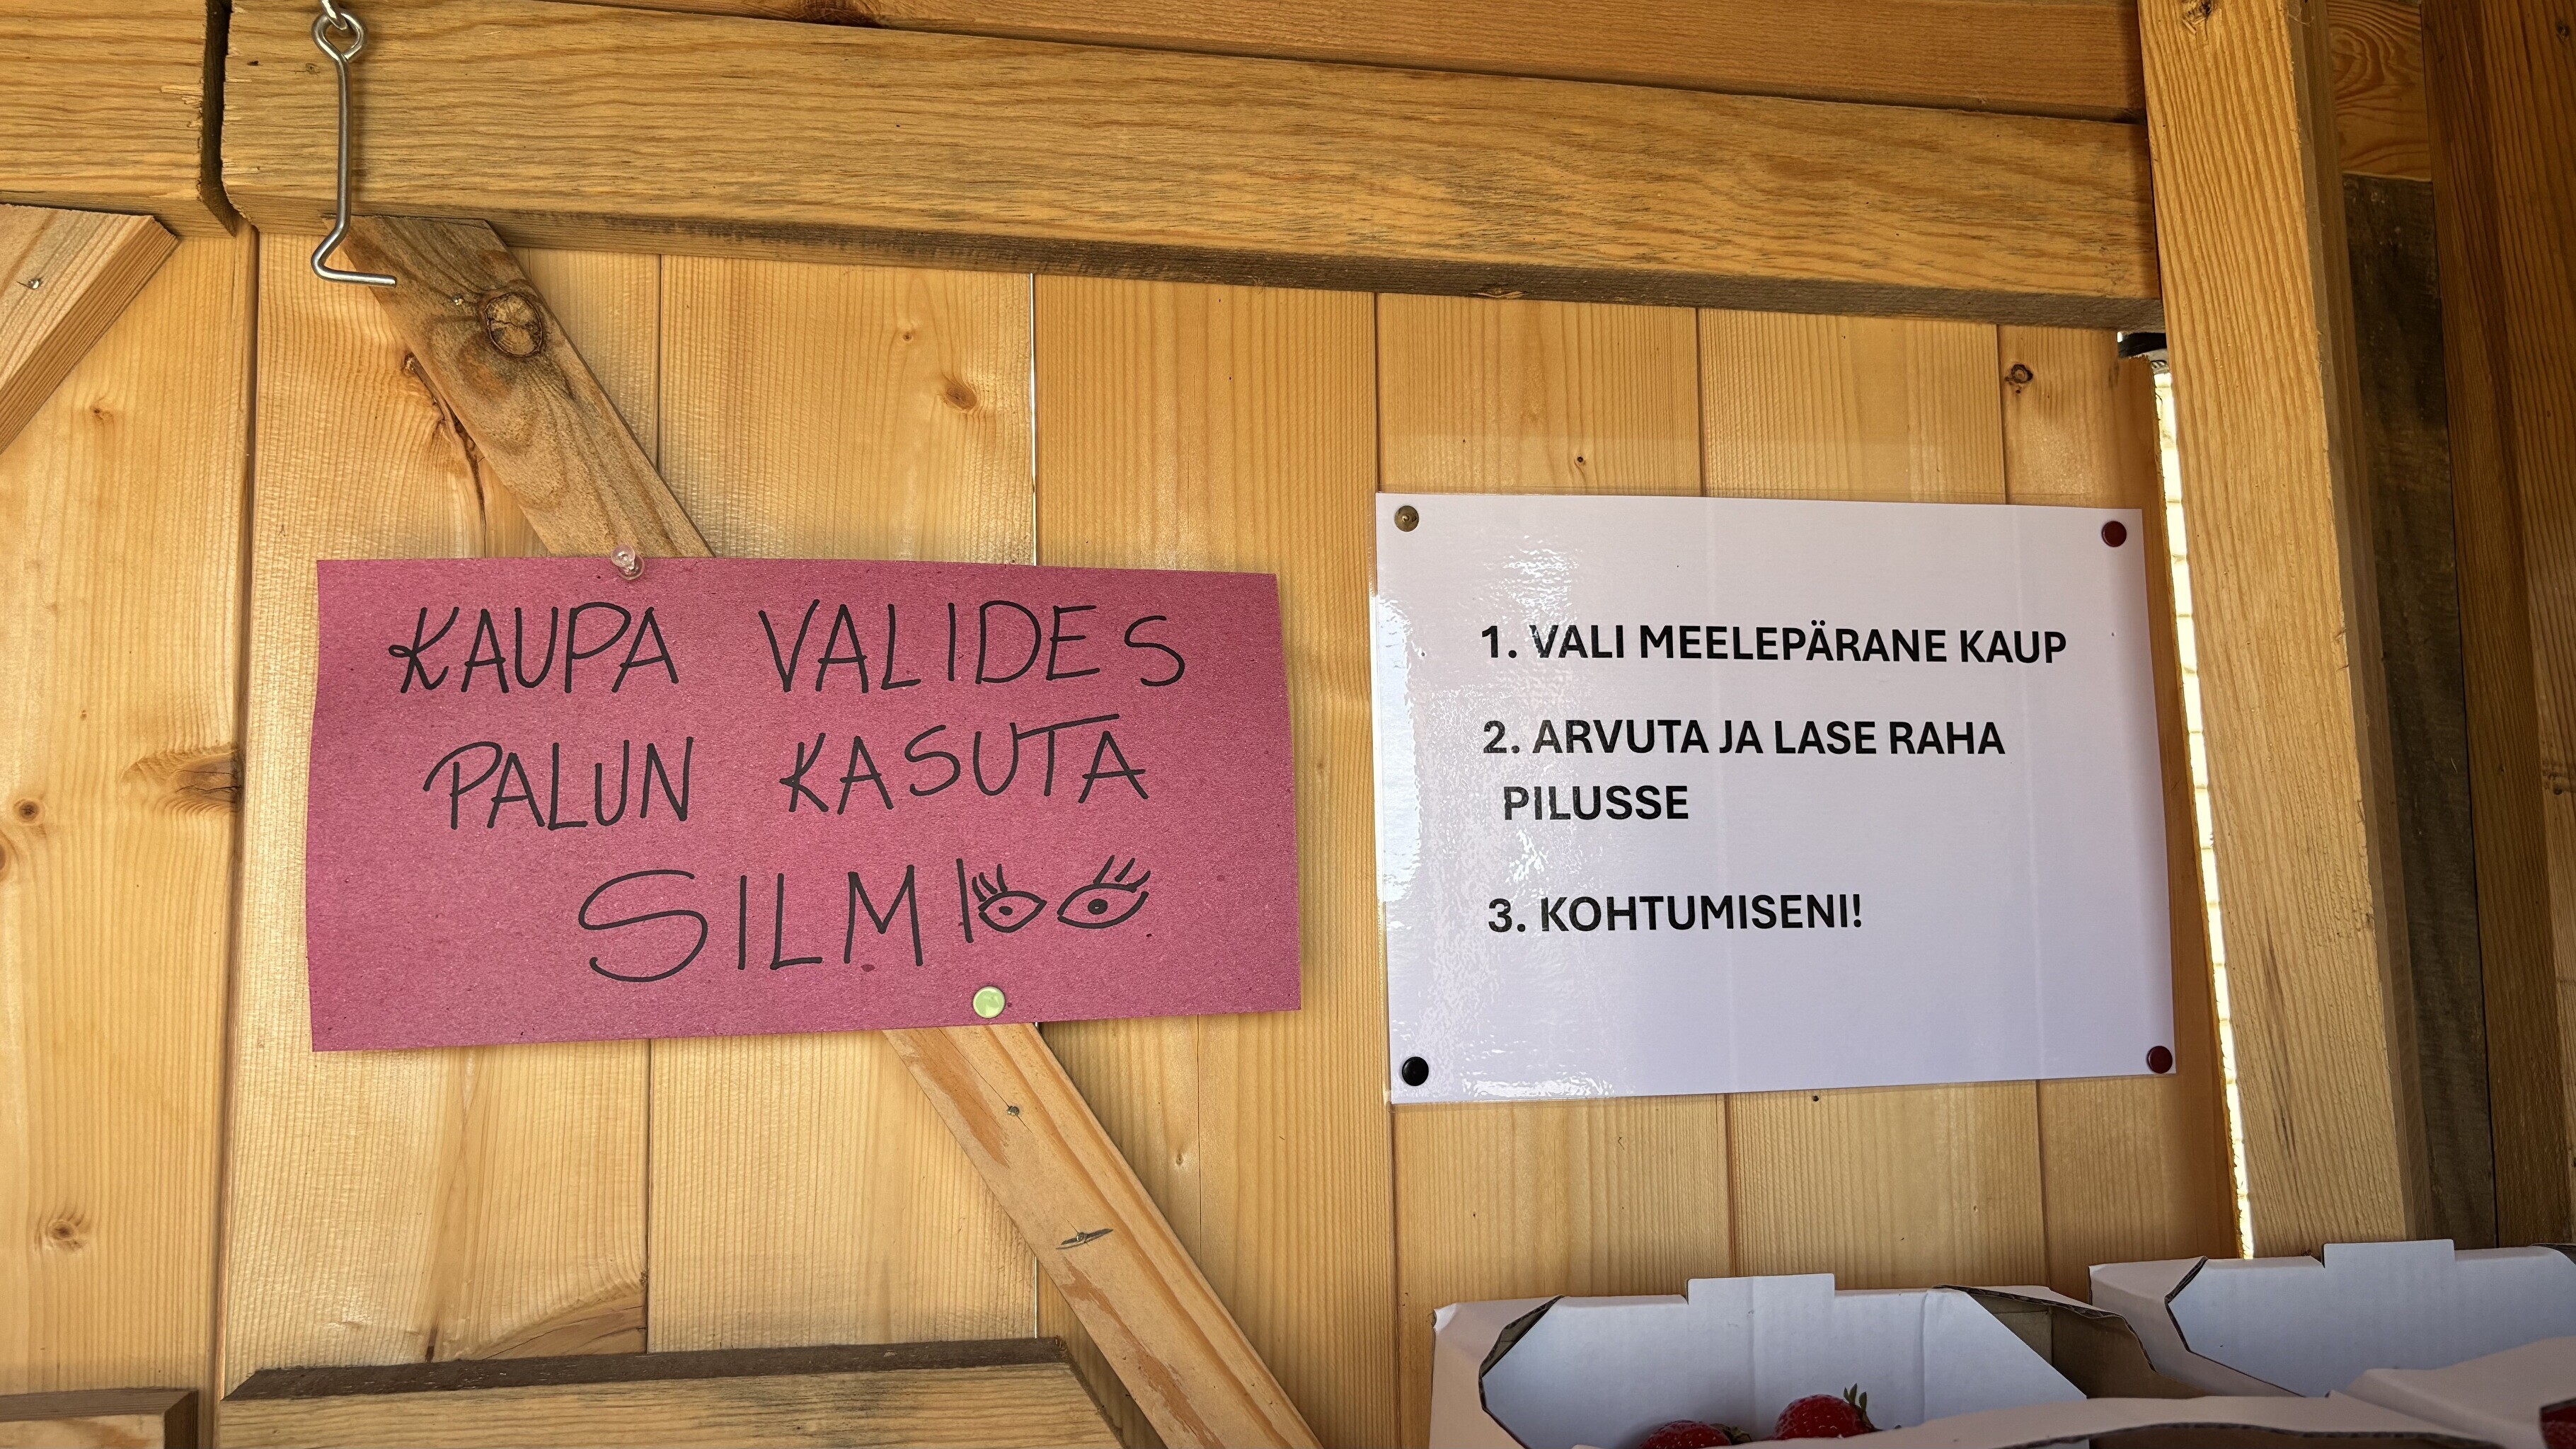 KAUPA VALIDES
PALUN KASUTA
SILMI
1. VALI MEELEPÄRANE KAUP
2. ARVUTA JA LASE RAHA
PILUSSE
3. KOHTUMISENI!